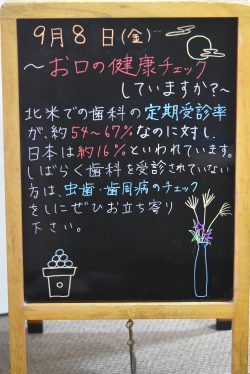 9月8日(金)
〜お口の健康チェック
していますか?〜
北米での歯科の定期受診率
が、約54~67%なのに対し、
日本は約16%といわれています。
しばらく歯科を受診されていない
方は、虫歯・歯周病のチェック
をしにぜひお立ち寄り
下さい。